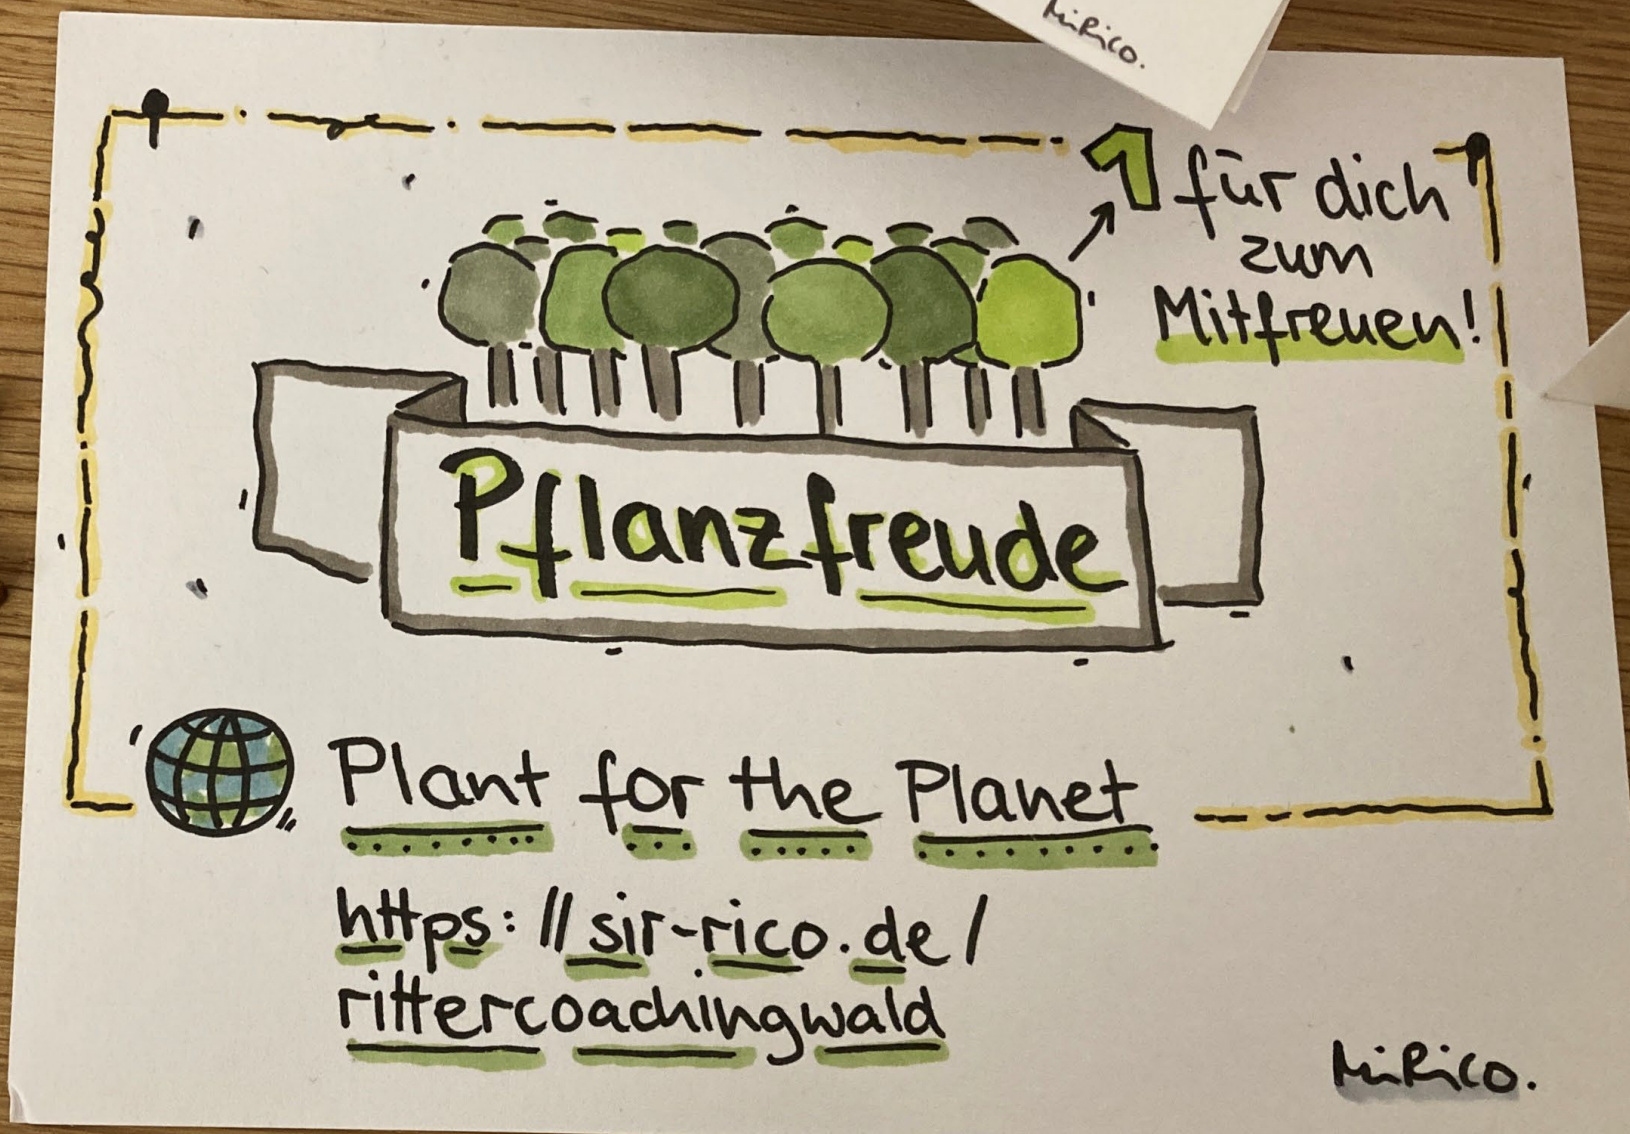 MiRico.
1 für dich
zum
Mitfreuen!
Pflanzfreude
Plant for the Planet
https://sir-rico.de/
rittercoachingwald
MiRico.